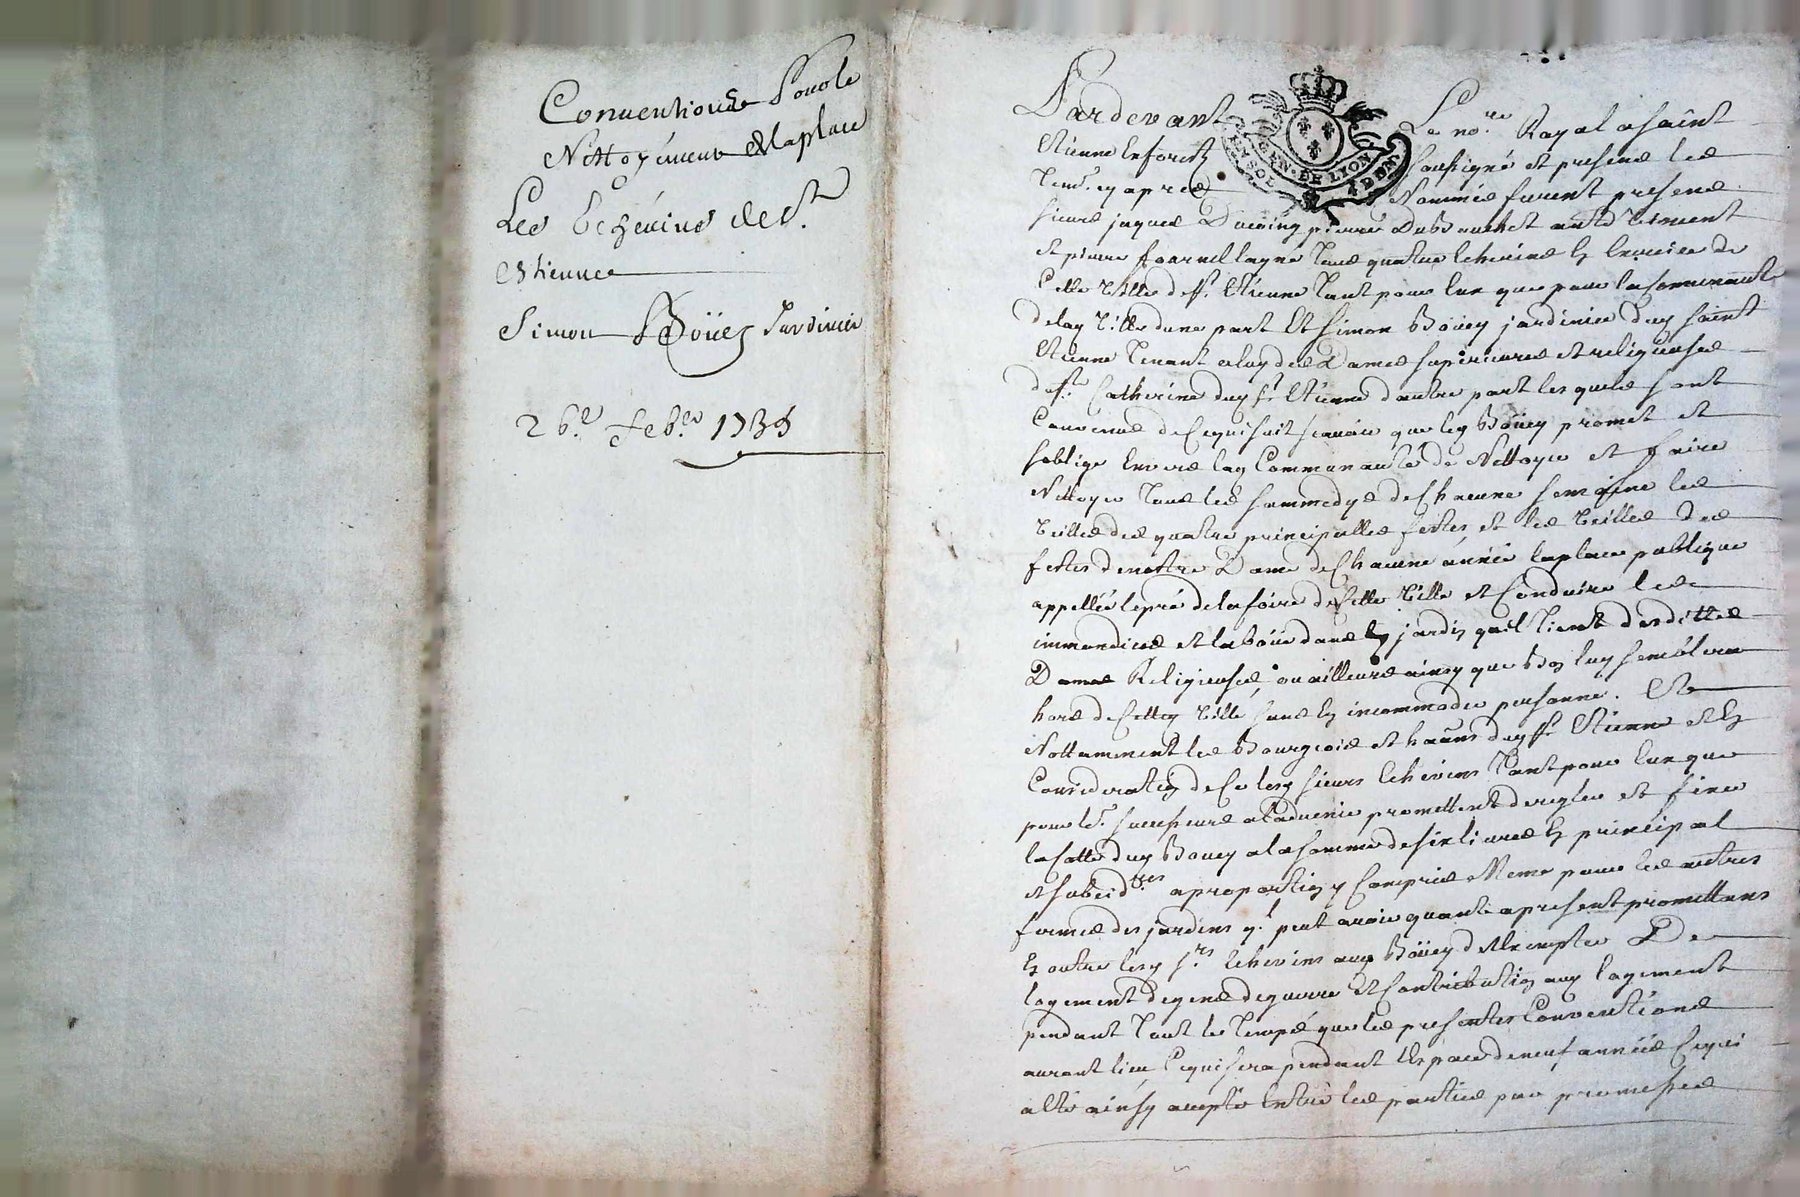 Conventions Pour le
Nettoyement de la place
Les Echevins de St
Estienne
Simon Boüey Jardinier
26e febvr 1735
Pardevant Le nore Royal a saint
Etienne en forest soussigné et presens les
tems cy apres Nommés furent presens
sieurs jaques pierre Dubouchet
et pierre fournel tous quatre Echevins en Exercice de
Cette Ville de st Etienne tant pour Eux que pour la Communauté
de lad Ville dune part Et simon Boüey jardinier dud saint
Etienne tenant a des Dames superieures et religieuses
de ste Catherine dud st Etienne dautre part lesquels sont
Convenus de Ce qui suit scavoir que led Boüey promet et
soblige Envers lad Communauté de Nettoyer et faire
Nettoyer tous les sammedys de Chacune semaine les
Veilles des quatre principalles festes et les Veilles des
festes de nostre Dame de Chacune année la place publique
appellée le pré de la foire de Cette Ville et Conduire les
immondices et la boüe dans le jardin quil tient desdittes
Dames Religieuses, ou ailleurs ainsy que bon luy semblera
hors de Cette Ville sans En incommoder personne. Et
Nottamment les Bourgeois et dud st Etienne et En
Consideration de Ce lesd sieurs Echevins tant pour Eux que
pour leurs successeurs a ladvenir promettent de regler et fixer
la Cotte dud Boüey a la somme de six livres En principal
et subcid a proportion y Compris Meme pour les autres
fermes des jardins quil peut avoir quant a present promettans
En outre lesd srs Echevins aud Boüey de lexempter De
logement de gens de guerre Et Contribution aud logement
pendant tout le temps que les presentes Conventions
auront lieu Ce qui sera pendant lespace de neuf années Ce qui
a esté ainsy accepté Entre les parties par promesses